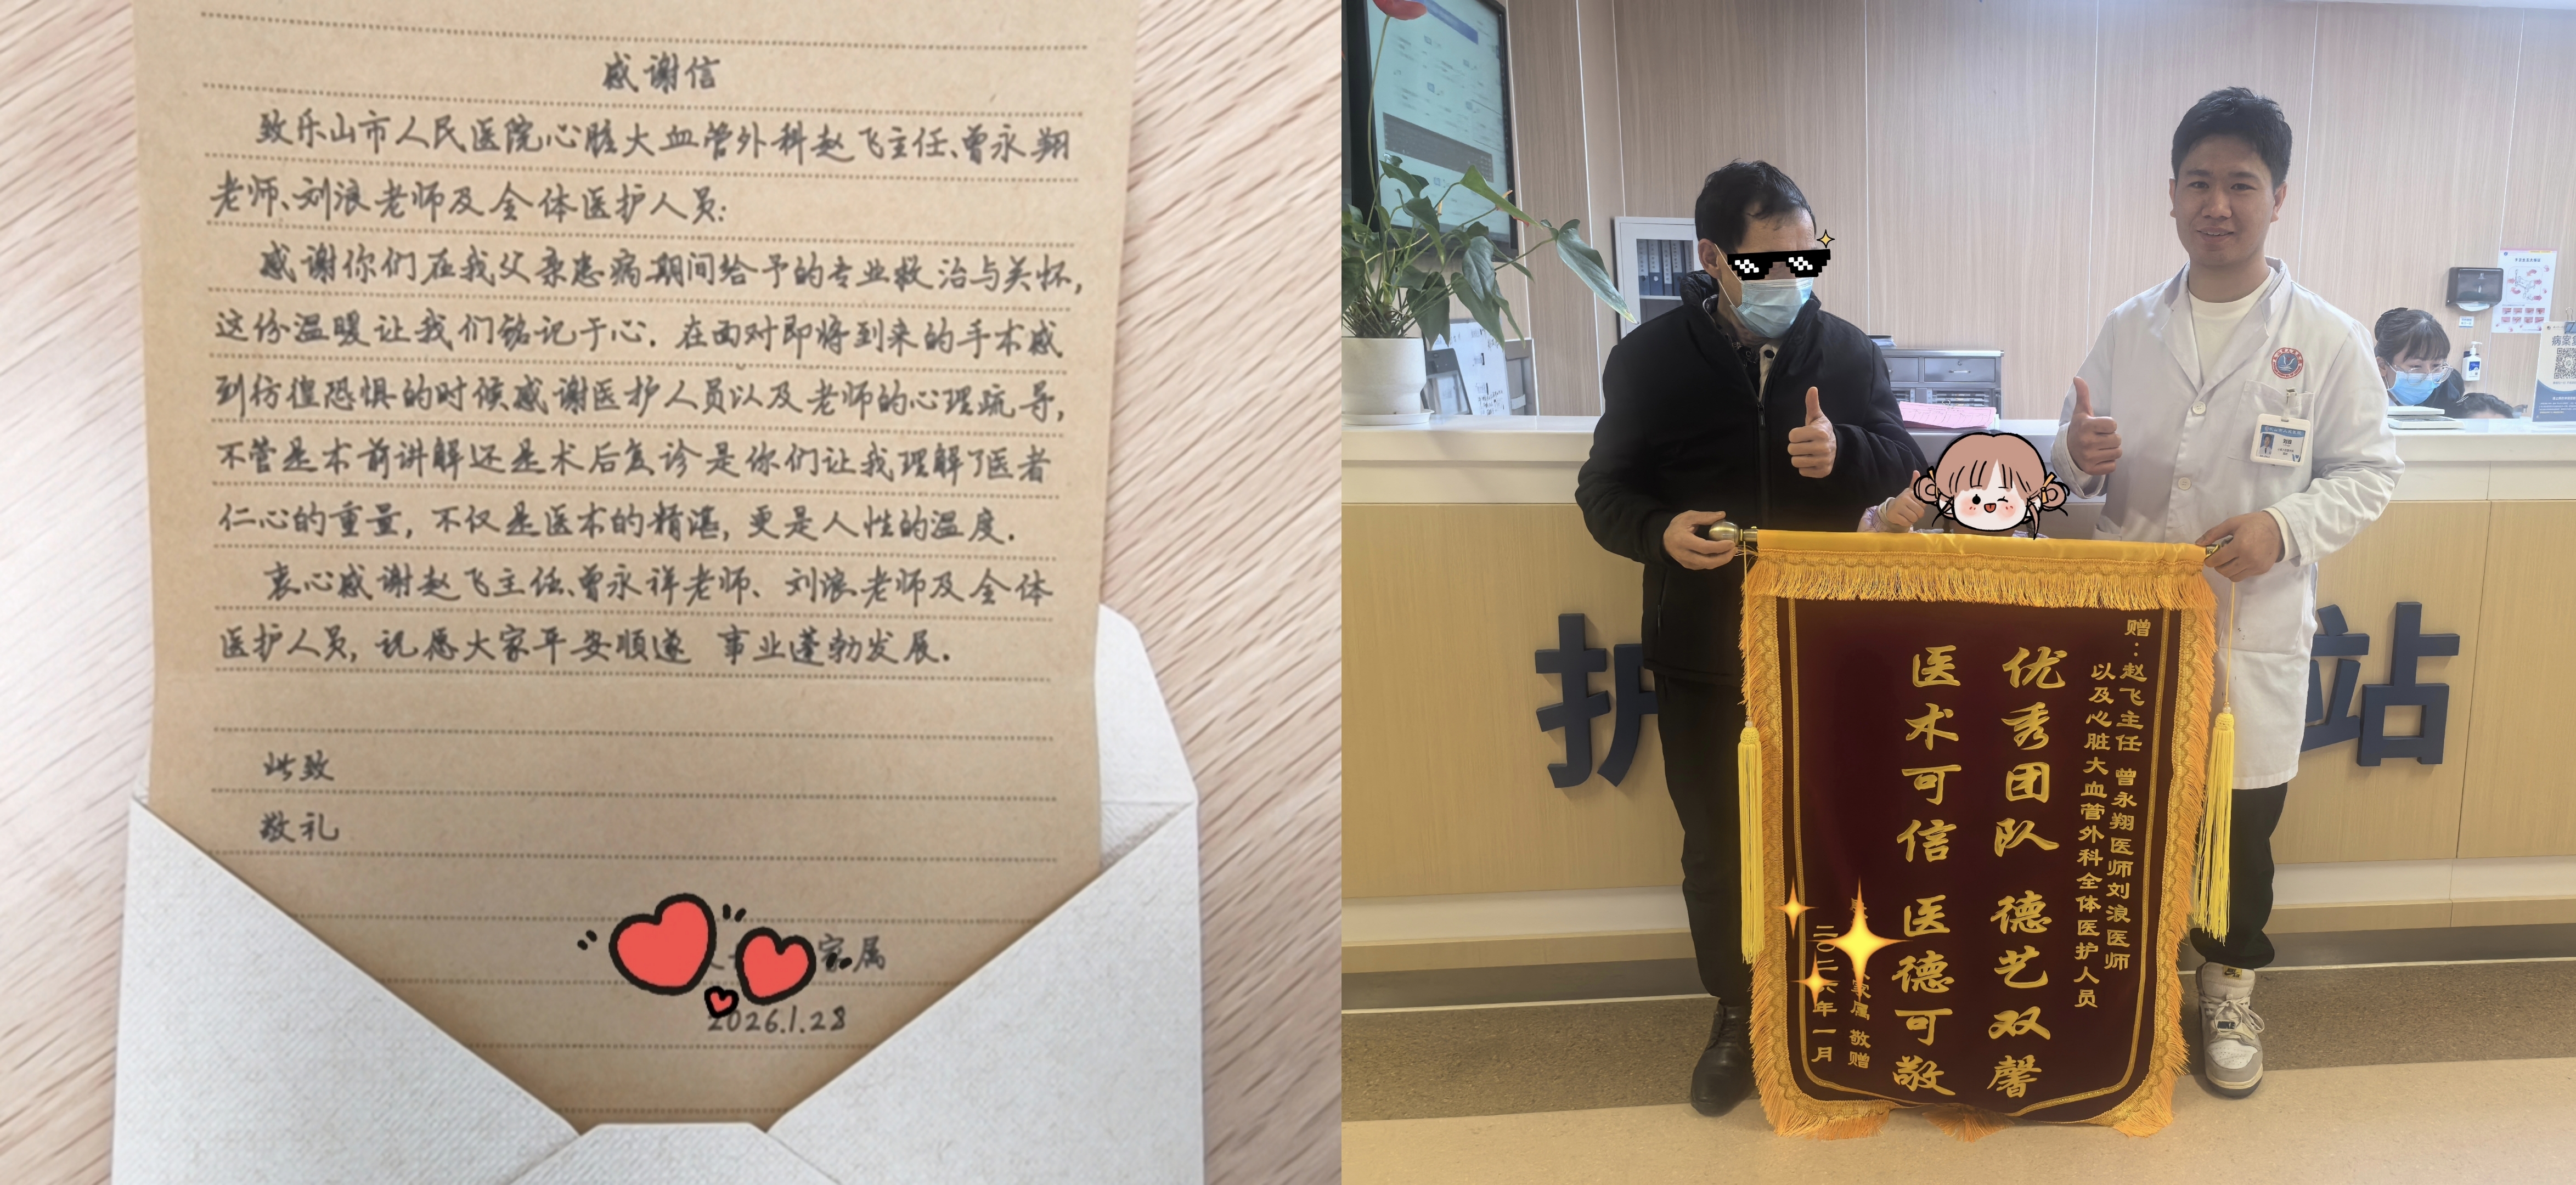 感谢信
致乐山市人民医院心脏大血管外科赵飞主任、曾永翔
老师、刘浪老师及全体医护人员:
感谢你们在我父亲患病期间给予的专业救治与关怀,
这份温暖让我们铭记于心.在面对即将到来的手术感
到彷徨恐惧的时候感谢医护人员以及老师的心理疏导,
不管是术前讲解还是术后复诊是你们让我理解了医者
仁心的重量,不仅是医术的精湛,更是人性的温度.
衷心感谢赵飞主任、曾永祥老师、刘浪老师及全体
医护人员,祝愿大家平安顺遂 事业蓬勃发展.
此致
敬礼
家属
2026.1.28
护
站
赠:赵飞主任 曾永翔医师刘浪医师
以及心脏大血管外科全体医护人员
优秀团队 德艺双馨
医术可信 医德可敬
家属 敬赠
二〇二六年一月
病案